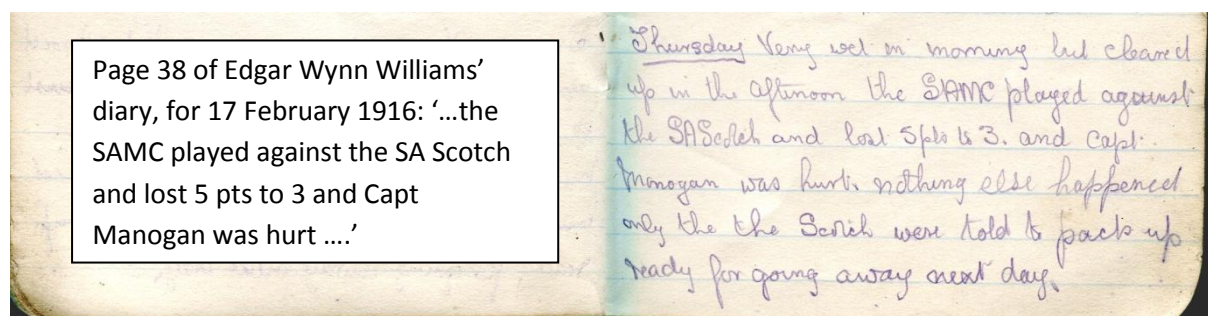 Page 38 of Edgar Wynn Williams’
diary, for 17 February 1916: ‘…the
SAMC played against the SA Scotch
and lost 5 pts to 3 and Capt
Manogan was hurt ….’
Thursday Very wet in morning but cleared
up in the afternoon the SAMC played against
the SAScotch and lost 5pts to 3. and Capt.
Monogan was hurt. nothing else happened
only the the Scotch were told to pack up
ready for going away next day.